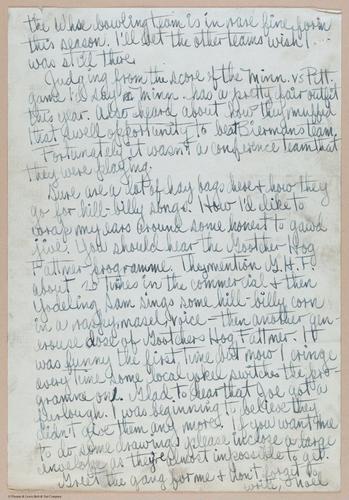 the Whse bowling team is in rare fine form
this season. I'll bet the other teams wish I
was still there.
Judging from the score of the Minn. vs Pitt.
game I'd say Minn. has a pretty fair outfit
this year. Also heard about how they muffed
that swell opportunity to beat Bierman's team.
Fortunately it wasn't a conference team that
they were playing.
Sure are a lot of hay bags here & how they
go for hill-billy songs. How I'd like to
wrap my ears around some honest to gawd
jive. You should hear the Gootcher Hog
Fattner programme. They mention G.H.F.
about 20 times in the commercial & then
Yodeling Sam sings some hill-billy corn
in a raspy, nasel voice - then another gen-
erouse dose of Gootchers Hog Fattner. It
was funny the first time but now I cringe
every time some local yokel switches the pro-
gramme on. Glad to hear that Joe got a
furlough. I was beginning to believe they
didn't give them any more. If you want me
to do some drawings please inclose a large
envelope as they're almost impossible to get.
Greet the gang for me & don't forget to
write,